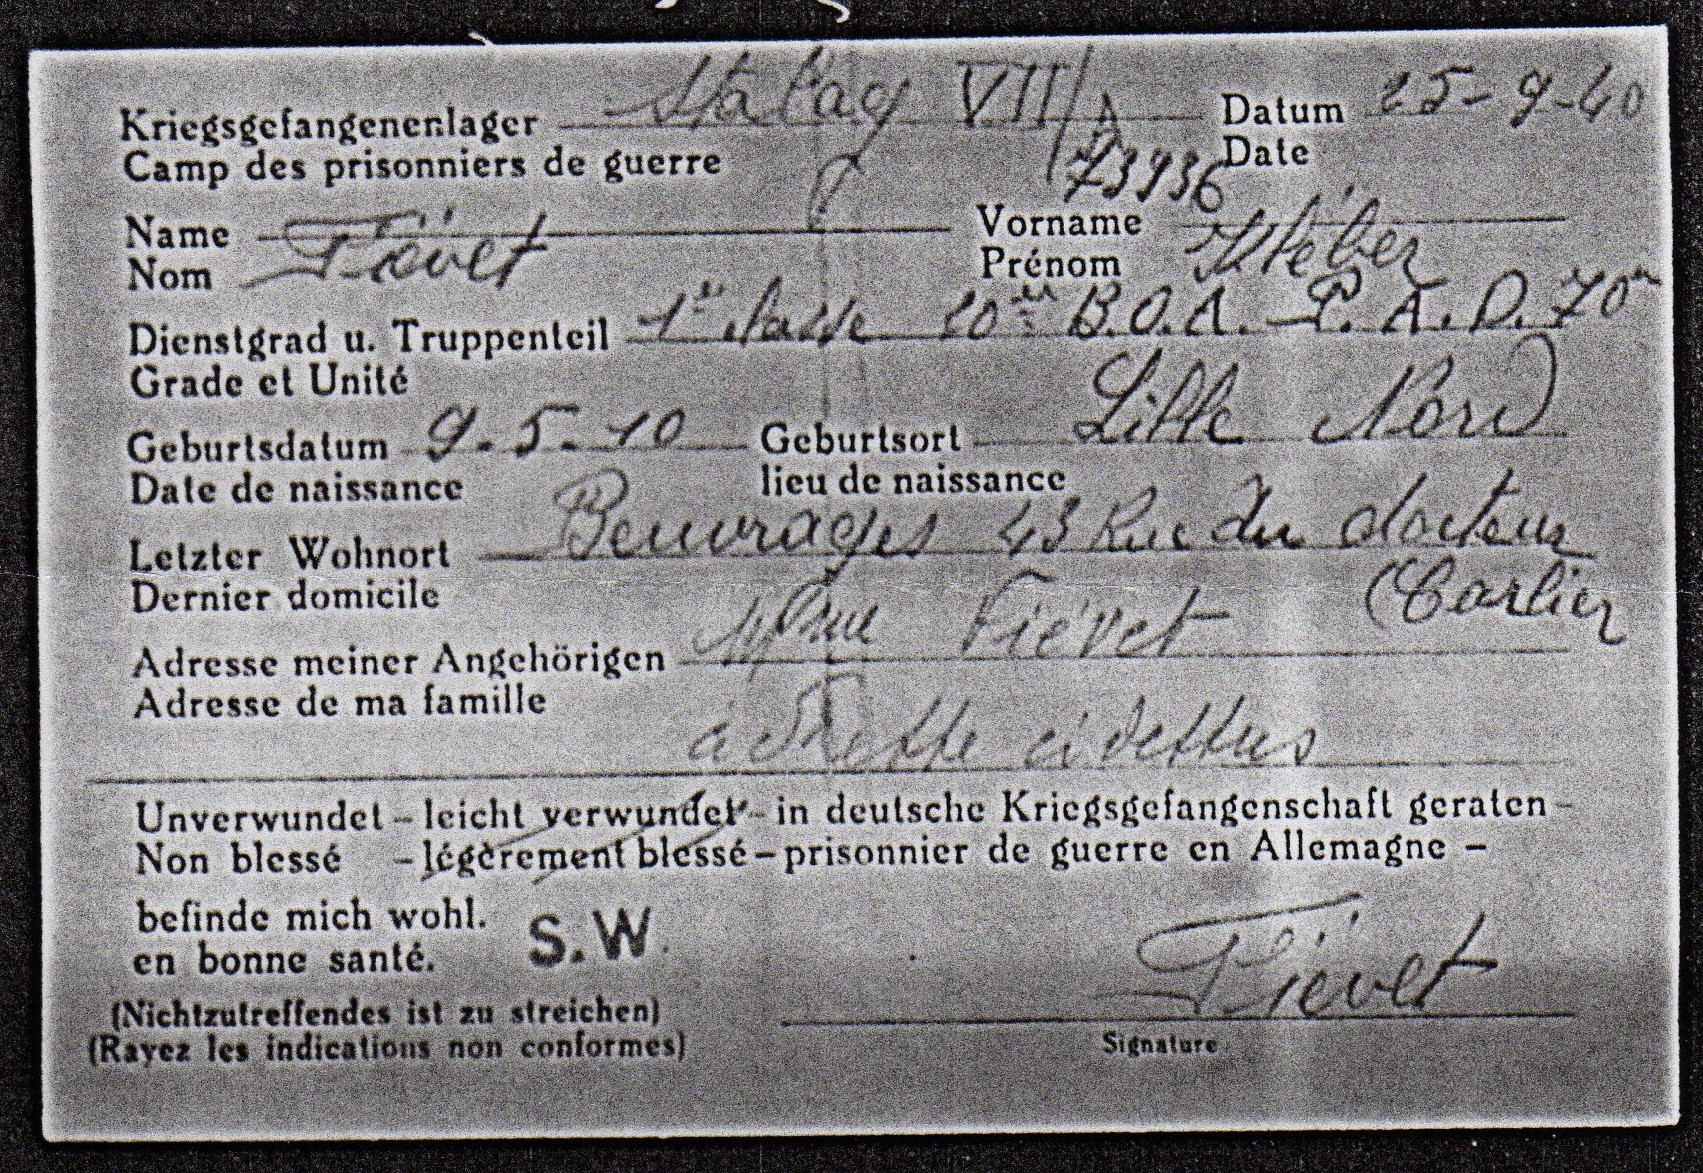 Kriegsgefangenenlager Stalag VII/A Datum 25-9-40
Camp des prisonniers de guerre 73936 Date
Name Fiévet Vorname Kléber
Nom Prénom
Dienstgrad u. Truppenteil 1re classe 10me B.O.A. P.A.D. 70
Grade et Unité
Geburtsdatum 9-5-10 Geburtsort Lille Nord
Date de naissance lieu de naissance
Letzter Wohnort Beuvrages 43 Rue du docteur
Dernier domicile Carlier
Adresse meiner Angehörigen Mme Fiévet
Adresse de ma famille
adresse ci dessus
Unverwundet – leicht verwundet – in deutsche Kriegsgefangenschaft geraten –
Non blessé – légèrement blessé – prisonnier de guerre en Allemagne –
befinde mich wohl.
en bonne santé. S.W.
Fiévet
(Nichtzutreffendes ist zu streichen)
(Rayez les indications non conformes) Signature